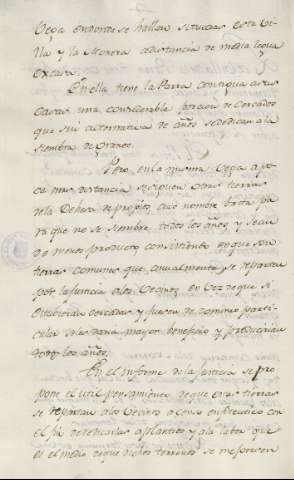 Vega endonde se hallan situadas esta Vi
lla y la Morera adistancia de media legua
escasa.
En ella tiene la Parra contigua asus
Casas una considerable porcion de Cercados
que sin alternativa de años sededican ala
siembra de granos.
Pero en la misma Vega a po
ca mas distancia se siguen otras tierras
dela Dehesa de propios, cuio nombre basta pa
ra que no se siembren todos los años, y sean
de menos producto, consistiendo en que son
tierras comunes que anualmente se reparten
por la Justicia alos Vecinos, en vez de que si
estubieran cercadas y fuesen de dominio parti
cular se las daria mayor beneficio y producirian
todos los años.
En el informe de la Justicia se pro
pone el util pensamiento deque estas tierras
se repartan alos Vecinos a censo enfiteutico con
el fin dededicarlas aplantio y ala labor que
es el medio deque dichos terrenos se mejorasen